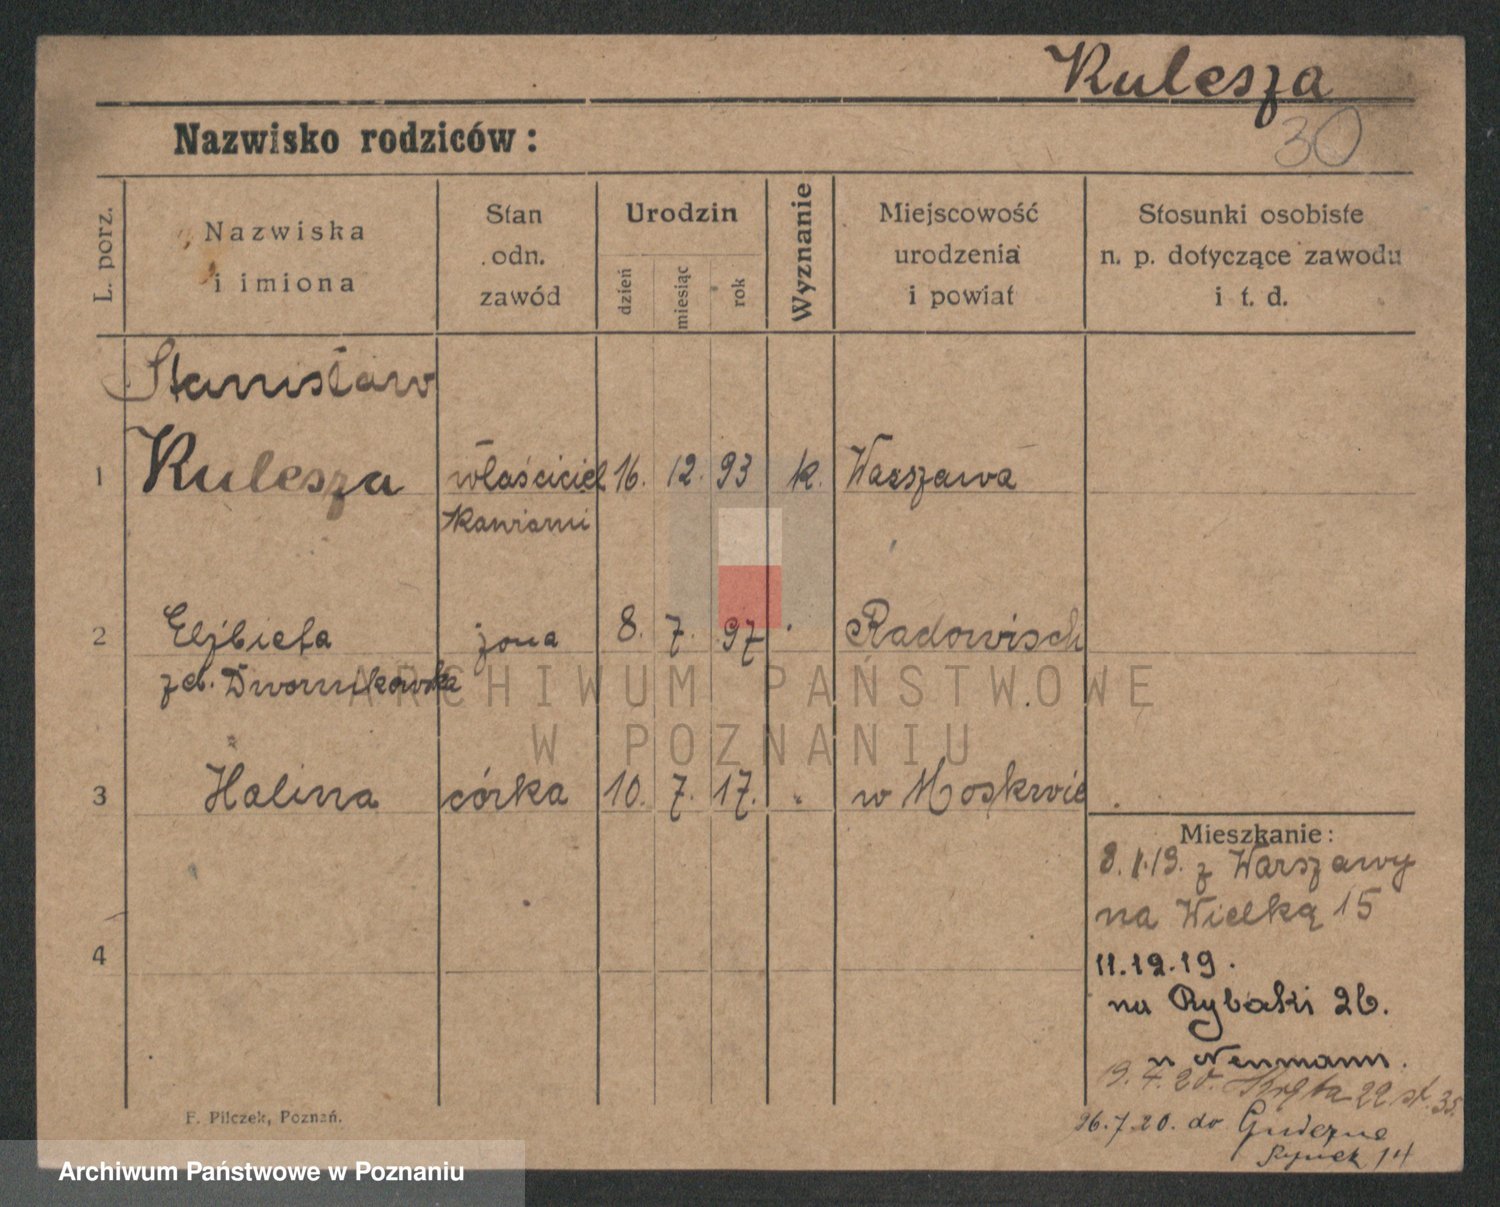 Kulesza
30
Nazwisko rodziców:
L. porz.
Nazwiska
i imiona
Stan
odn.
zawód
Urodzin
dzień
miesiąc
rok
Wyznanie
Miejscowość
urodzenia
i powiat
Stosunki osobiste
n. p. dotyczące zawodu
i t. d.
Stanisław
1 Kulesza właściciel 16. 12. 93 k. Warszawa
kawiarni
2 Elżbieta żona 8. 7. 97 Radowisch
zd. Dwornikowska
3 Halina córka 10. 7. 17. w Moskwie
4
Mieszkanie:
8.1.19. z Warszawy
na Wielką 15
11.12.19.
na Rybaki 26.
u Neumann.
19.4.20. 22 st. 35.
26.7.20. do Gniezna
Rynek 14
F. Pilczek, Poznań.
ARCHIWUM PAŃSTWOWE
W POZNANIU
Archiwum Państwowe w Poznaniu